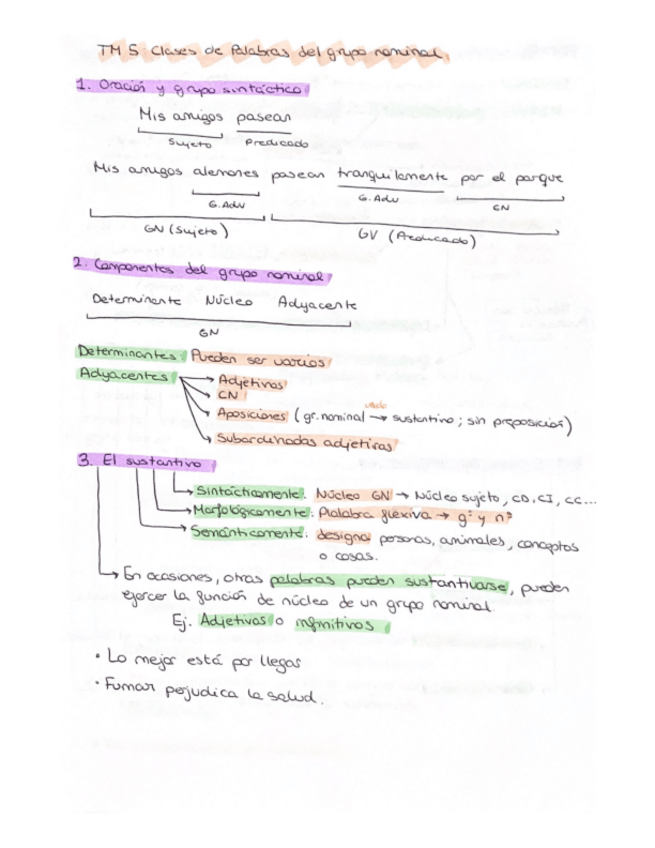 TM 5: Clases de Palabras del grupo nominal
1. Oración y grupo sintáctico
Mis amigos pasean
Sujeto Predicado
Mis amigos alemanes pasean tranquilamente por el parque
G.Adv G.Adv CN
GN (Sujeto) GV (Predicado)
2. Componentes del grupo nominal
Determinante Núcleo Adyacente
GN
Determinantes: Pueden ser varios
Adyacentes → Adjetivas
→ CN
→ Aposiciones (gr. nominal → sustantivo; sin preposición)
→ Subordinadas adjetivas
3. El sustantivo
→ Sintácticamente: Núcleo GN → Núcleo sujeto, CD, CI, CC...
→ Morfológicamente: Palabra flexiva → gº y nº
→ Semánticamente: designa personas, animales, conceptos
o cosas.
→ En ocasiones, otras palabras pueden sustantivarse, pueden
ejercer la función de núcleo de un grupo nominal.
Ej. Adjetivos o infinitivos
• Lo mejor está por llegas
• Fumar perjudica la salud.